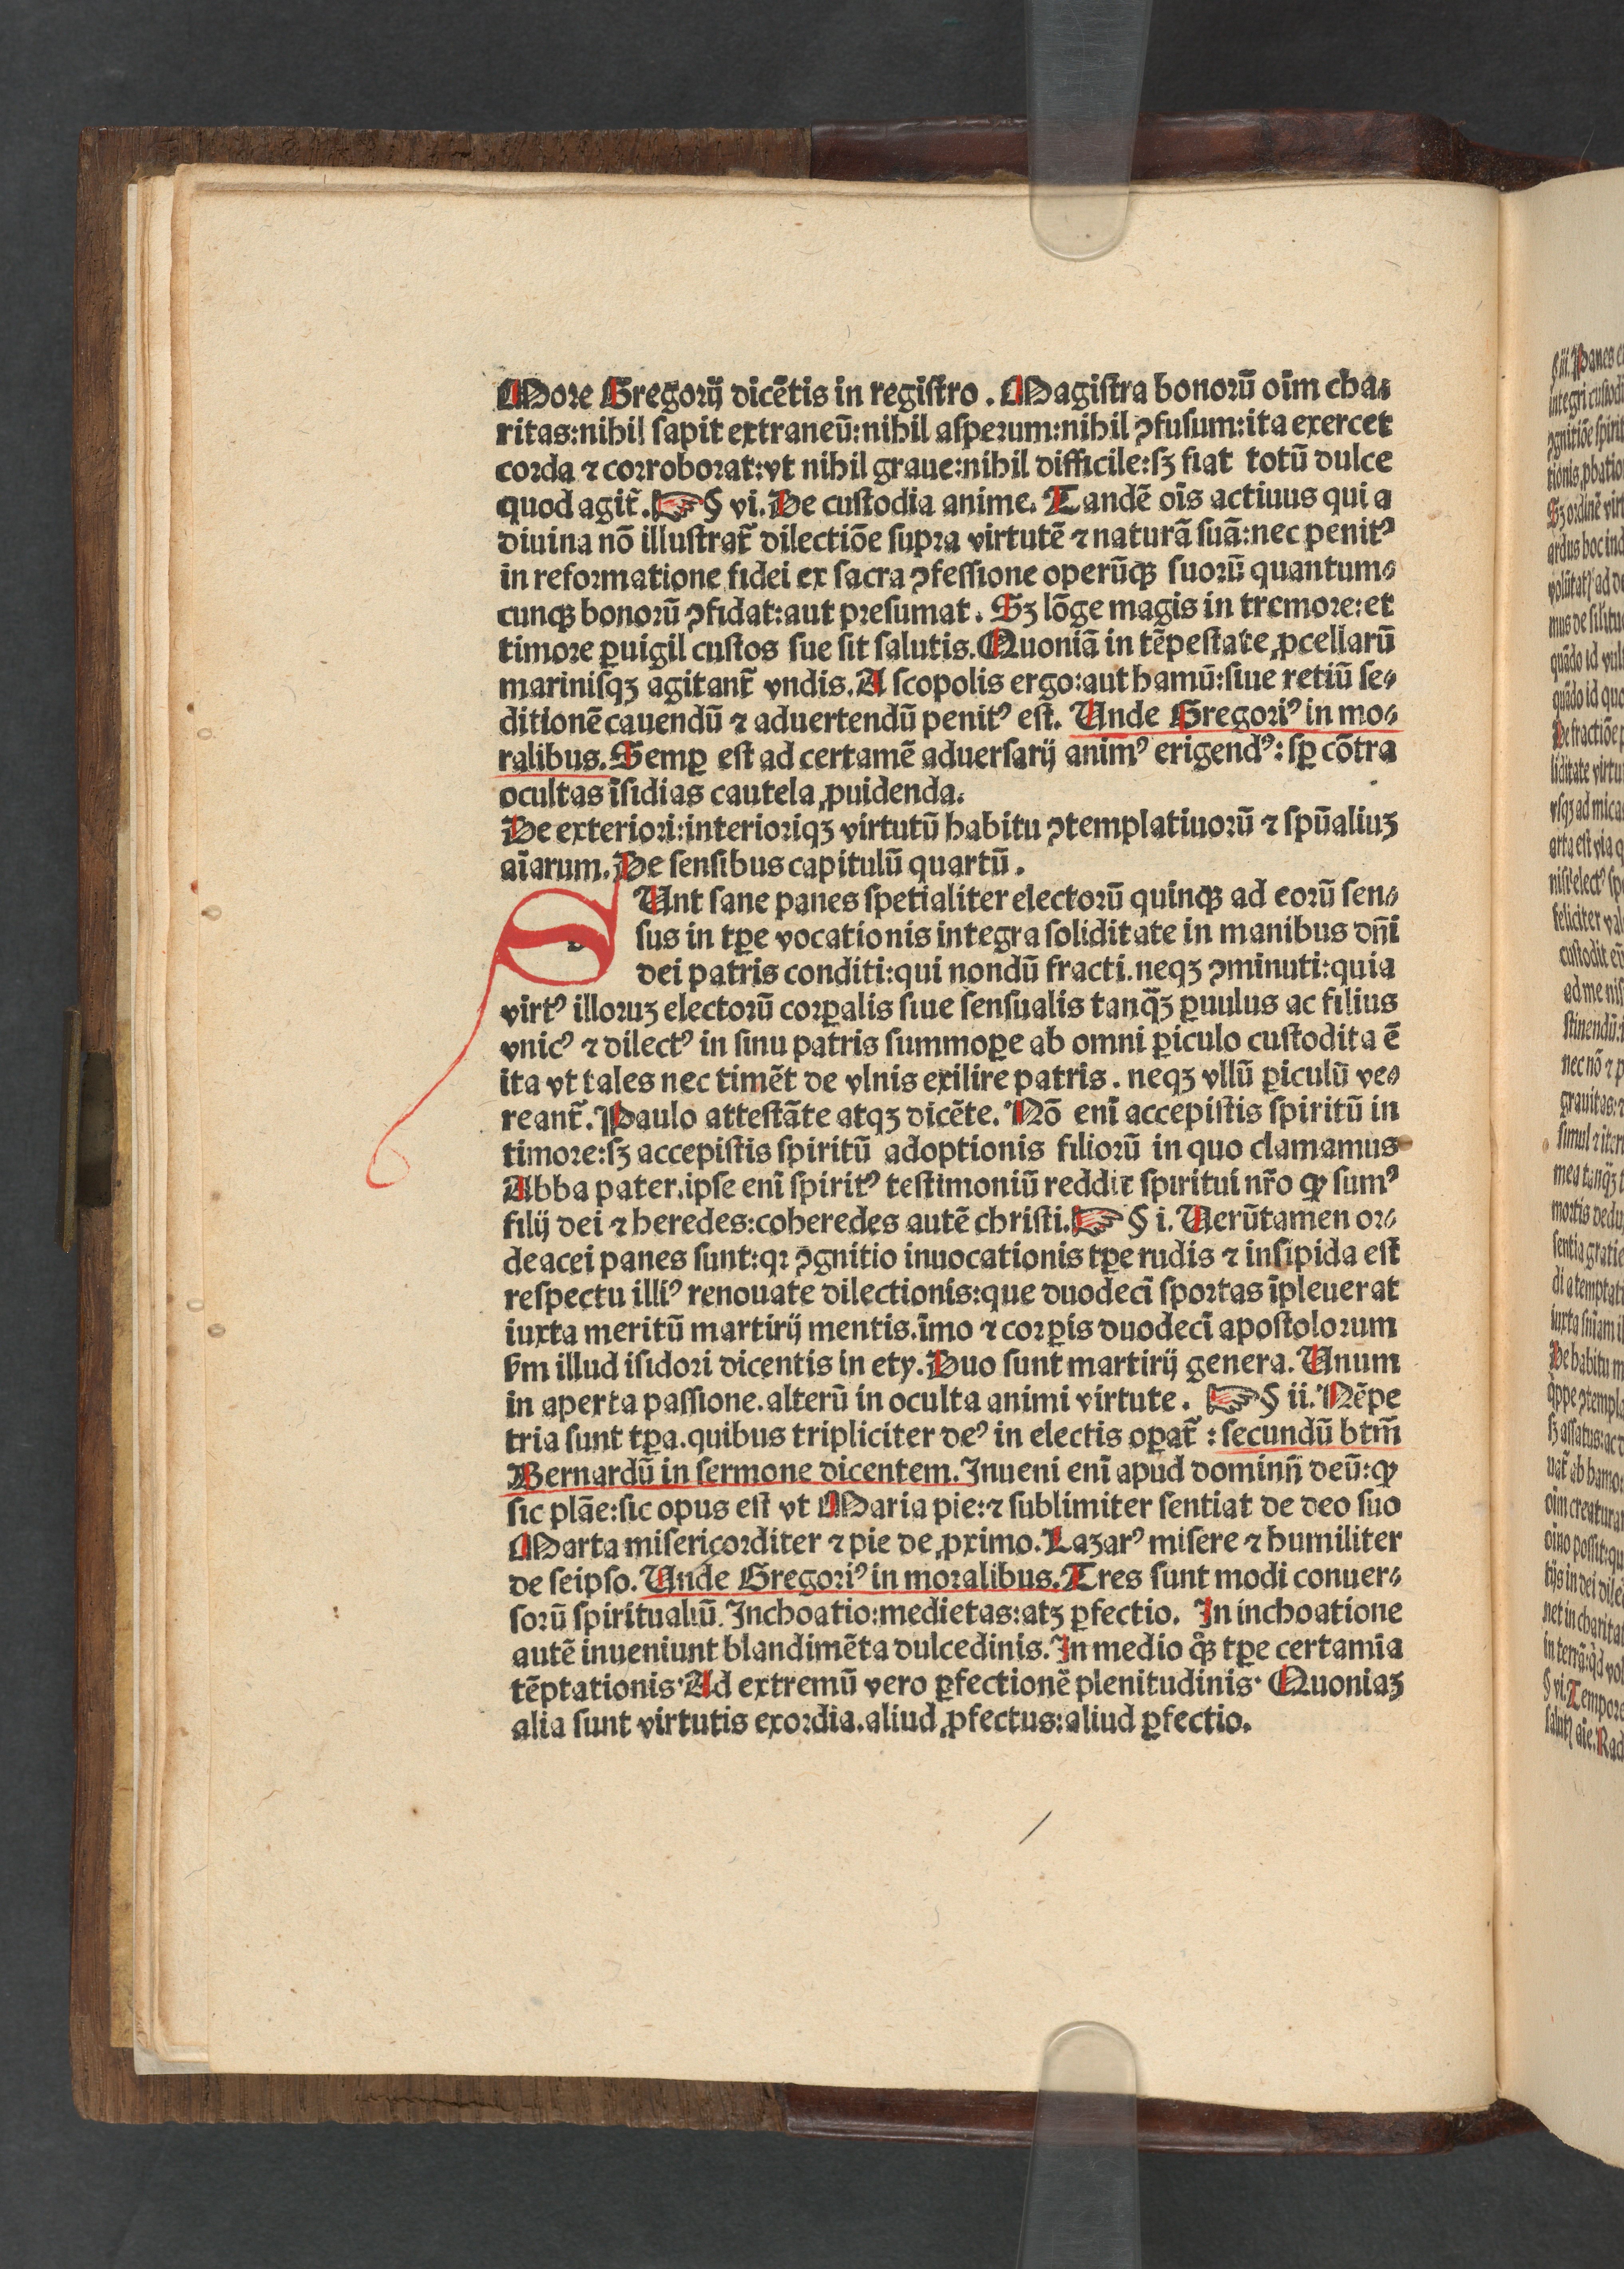 More Gregorij dicẽtis in regiſtro. Magiſtra bonorũ oĩm cha⸗
ritas:nihil ſapit extraneũ:nihil aſperum:nihil ↄfuſum:ita exercet
corda ⁊ corroborat:vt nihil graue:nihil difficile:ſꝫ fiat totũ dulce
quod agit̃.☞§ vi. De cuſtodia anime. Tandẽ oĩs actiuus qui a
diuina nõ illuſtrat̃ dilectiõe ſupra virtutẽ ⁊ naturã ſuã:nec penitꝰ
in reformatione fidei ex ſacra ↄfeſſione operũqꝫ ſuorũ quantum⸗
cunqꝫ bonorũ ↄfidat:aut preſumat. Sꝫ lõge magis in tremore:et
timore ꝑuigil cuſtos ſue ſit ſalutis. Quoniã in tẽpeſtate ꝓcellarũ
mariniſqꝫ agitant̃ vndis. A ſcopolis ergo:aut hamũ:ſiue retiũ ſe⸗
ditionẽ cauendũ ⁊ aduertendũ penitꝰ eſt. Unde Gregoriꝰ in mo⸗
ralibus. Semꝑ eſt ad certamẽ aduerſarij animꝰ erigendꝰ: ſꝑ cõtra
ocultas ĩſidias cautela ꝓuidenda.
De exteriori:interioriqꝫ virtutũ habitu ↄtemplatiuorũ ⁊ ſpũaliuꝫ
aĩarum. De ſenſibus capitulũ quartũ.
SUnt ſane panes ſpetialiter electorũ quinqꝫ ad eorũ ſen⸗
ſus in tꝑe vocationis integra ſoliditate in manibus dñi
dei patris conditi:qui nondũ fracti.neqꝫ ↄminuti:quia
virtꝰ illoruꝫ electorũ corꝑalis ſiue ſenſualis tanq̃ꝫ ꝑuulus ac filius
vnicꝰ ⁊ dilectꝰ in ſinu patris ſummoꝑe ab omni ꝑiculo cuſtodita ẽ
ita vt tales nec timẽt de vlnis exilire patris. neqꝫ vllũ ꝑiculũ ve⸗
reant̃. Paulo atteſtãte atqꝫ dicẽte. Nõ enĩ accepiſtis ſpiritũ in
timore:ſꝫ accepiſtis ſpiritũ adoptionis filiorũ in quo clamamus
Abba pater.ipſe enĩ ſpiritꝰ teſtimoniũ reddit ſpiritui nr̃o ꝙ ſumꝰ
filij dei ⁊ heredes:coheredes autẽ chriſti.☞§ i. Uerũtamen or⸗
deacei panes ſunt:qꝛ ↄgnitio inuocationis tꝑe rudis ⁊ inſipida eſt
reſpectu illiꝰ renouate dilectionis:que duodecĩ ſportas ĩpleuerat
iuxta meritũ martirij mentis.ĩmo ⁊ corꝑis duodecĩ apoſtolorum
ẜm illud iſidori dicentis in ety. Duo ſunt martirij genera. Unum
in aperta paſſione.alterũ in oculta animi virtute. ☞§ ii. Nẽpe
tria ſunt tꝑa.quibus tripliciter deꝰ in electis oꝑat̃ : ſecundũ btm̃
Bernardũ in ſermone dicentem. Inueni enĩ apud dominñ deũ:ꝙ
ſic plãe:ſic opus eſt vt Maria pie:⁊ ſublimiter ſentiat de deo ſuo
Marta miſericorditer ⁊ pie de ꝓximo. Lazarꝰ miſere ⁊ humiliter
de ſeipſo. Unde Gregoriꝰ in moralibus. Tres ſunt modi conuer⸗
ſorũ ſpiritualiũ. Inchoatio:medietas:atꝫ ꝑfectio. In inchoatione
autẽ inueniunt blandimẽta dulcedinis. In medio qͦꝫ tꝑe certamĩa
tẽptationis. Ad extremũ vero ꝑfectionẽ plenitudinis. Quoniaꝫ
alia ſunt virtutis exordia.aliud ꝓfectus:aliud ꝑfectio.